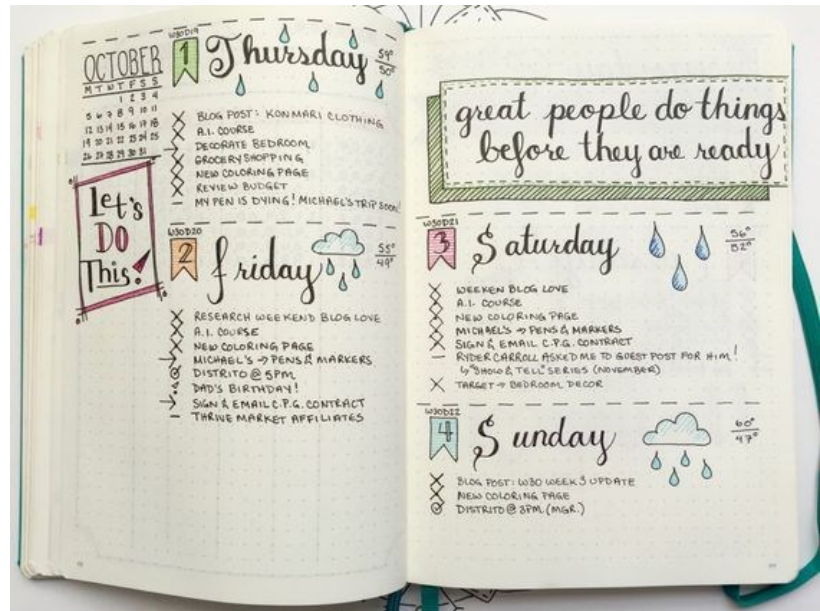 OCTOBER
M T W T F S S
1 2 3 4
5 6 7 8 9 10 11
12 13 14 15 16 17 18
19 20 21 22 23 24 25
26 27 28 29 30 31
Let's
DO
This!
W30D19
1 Thursday 59° 50°
X BLOG POST: KONMARI CLOTHING
X A.I. COURSE
→ DECORATE BEDROOM
X GROCERY SHOPPING
X NEW COLORING PAGE
X REVIEW BUDGET
– MY PEN IS DYING! MICHAEL'S TRIP SOON!
W30D20
2 friday 55° 49°
X RESEARCH WEEKEND BLOG LOVE
X A.I. COURSE
X NEW COLORING PAGE
→ MICHAEL'S → PENS & MARKERS
DISTRITO @ 5PM
DAD'S BIRTHDAY!
→ SIGN & EMAIL C.P.G. CONTRACT
– THRIVE MARKET AFFILIATES
great people do things
before they are ready
W30D21
3 Saturday 56° 52°
X WEEKEN BLOG LOVE
X A.I. COURSE
X NEW COLORING PAGE
X MICHAEL'S → PENS & MARKERS
X SIGN & EMAIL C.P.G. CONTRACT
– RYDER CARROLL ASKED ME TO GUEST POST FOR HIM!
↳ "SHOW & TELL" SERIES (NOVEMBER)
X TARGET → BEDROOM DECOR
W30D22
4 Sunday 60° 47°
X BLOG POST: W30 WEEK 3 UPDATE
X NEW COLORING PAGE
DISTRITO @ 3PM (MGR.)